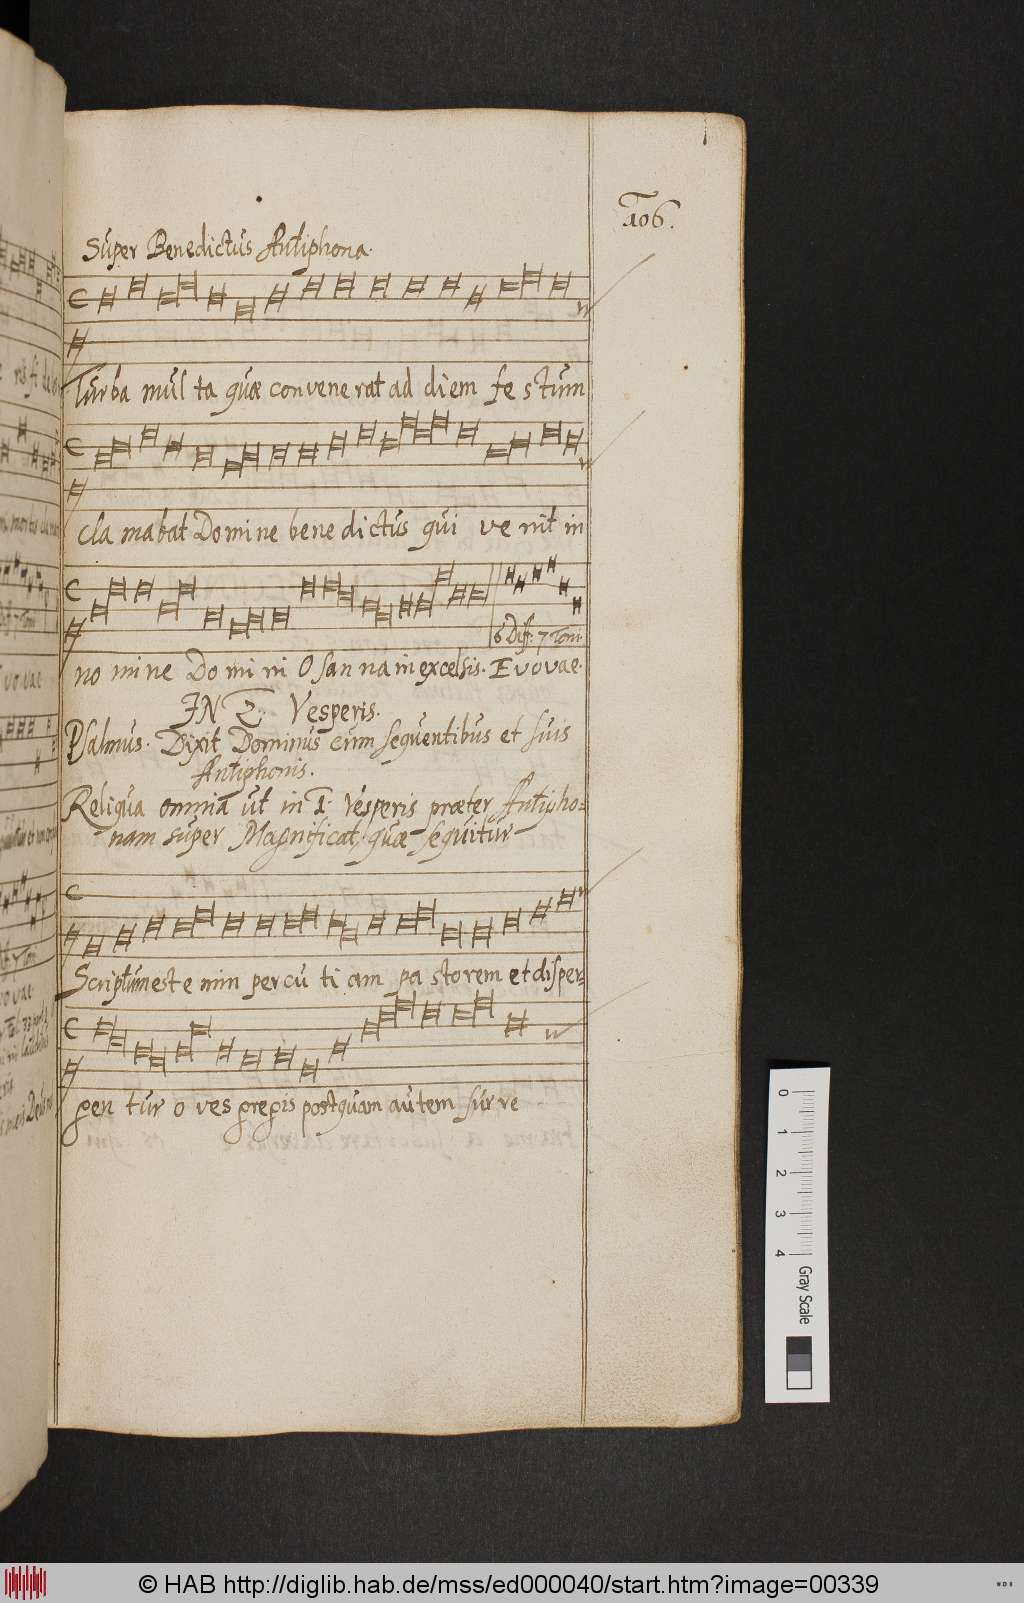 106.
Super Benedictus Antiphona.
Turba mul ta quæ convene rat ad diem fe stum
6 Diff: 7 Toni.
Cla mabat Domine bene dictus qui ve nit in
no mine Do mi ni O san na in excelsis. Evovae.
IN 2. Vesperis.
Psalmus. Dixit Dominus cum sequentibus et suis
Antiphonis.
Reliqua omnia ut in 1. Vesperis præter Antipho=
nam super Magnificat, quæ sequitur
Scriptum est e nim percu ti am pa storem et disper=
gen tur o ves gregis postquam autem sur re
0 1 2 3 4 Gray Scale
© HAB http://diglib.hab.de/mss/ed000040/start.htm?image=00339